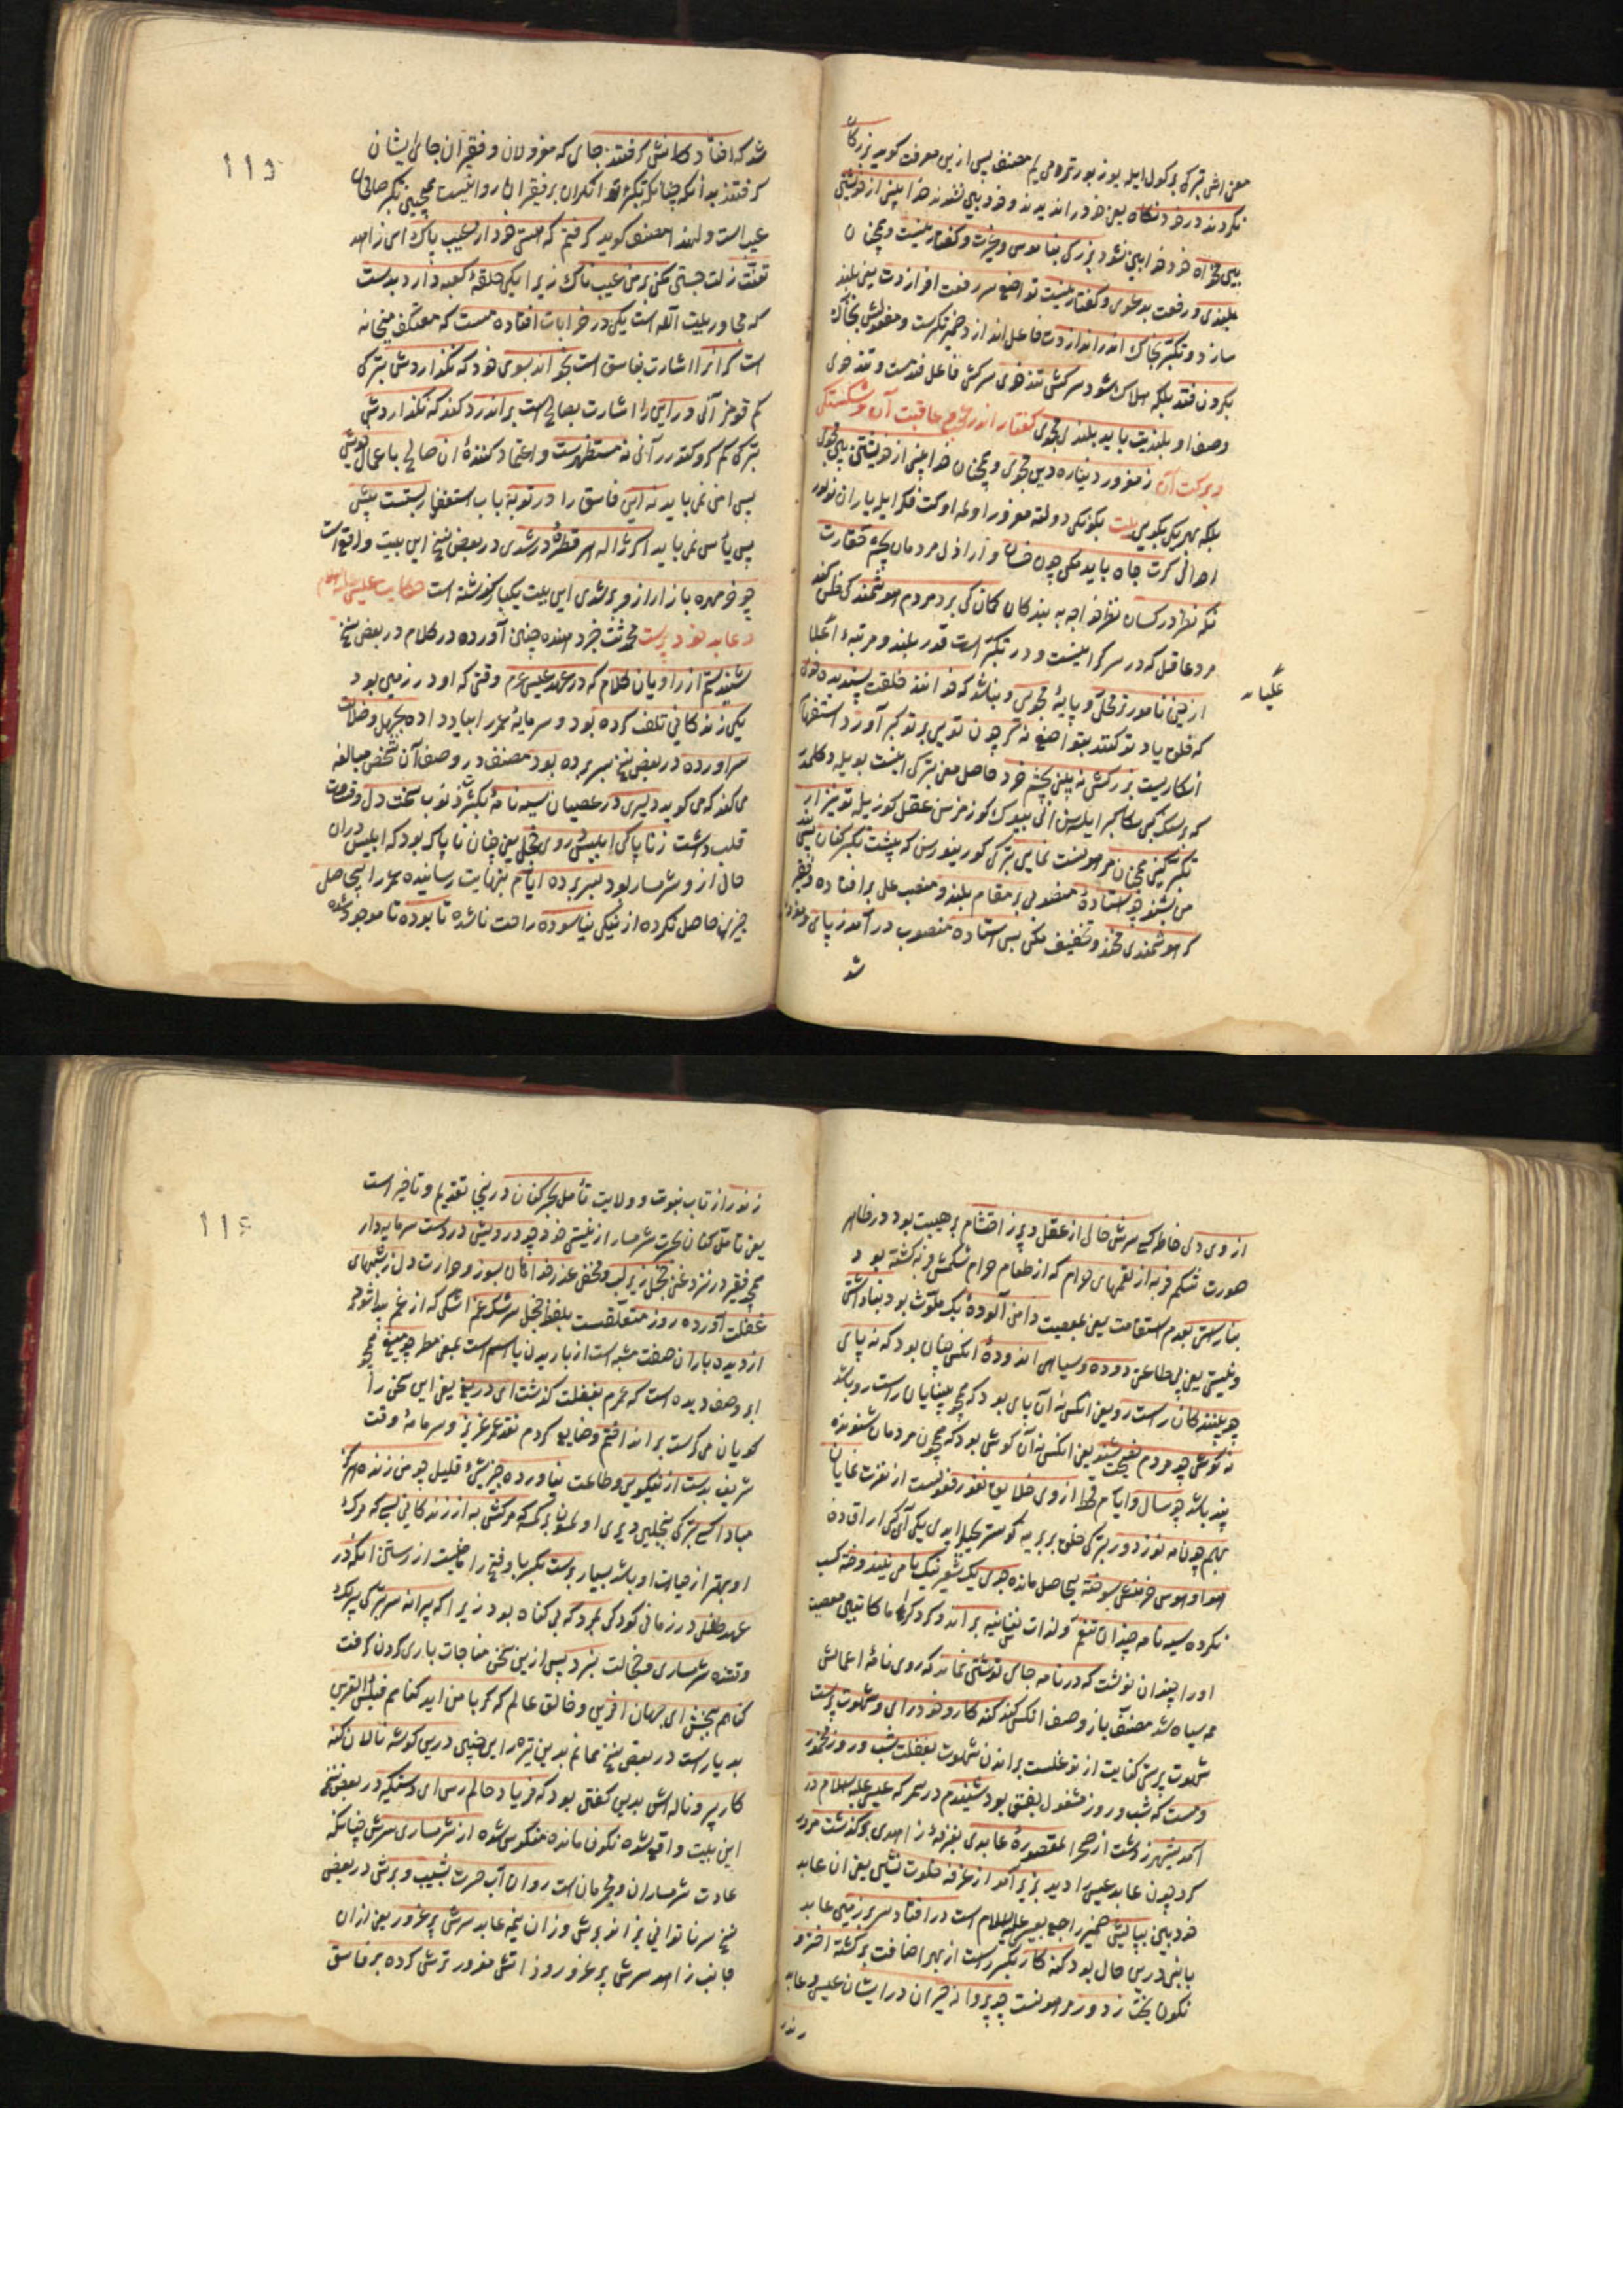 معنی اش ترکی بر کول ایله یوز بور ترومی یم مصنف پس ازین معرفت کوید بزرکان
نکردند در خود نکاه یعنی خود را ندیدند و خود بینی نفودند خدا بینی از خویشتن
بین مخواه خود خدا بین نشود بزرکی بناموس و غیرت و کفتار نیست و همچنان
بلندی و رفعت بدعوی و کفتار نیست تواضع سر رفعت افرازدت یعنی بلند
سازد و تکبر بخاک اندر اندازدت فاعل اندازد ضمیر تکبرست و مفعولش بخاک
بکردن فتد بلکه هلاک شود سرکش تندخوی سرکش فاعل فتدست و تندخوی
وصف او بلندیت باید بلندی مجوی کفتار اندر عجب و عاقبت آن و شکستکی
و برکت آن ز مغرور دنیا ره دین مجوی و همچنان خدا بینی از خویشتن بین مجوی
بلکه بهر یکی بکوی بیت بکونکی دولته مغرور اولمه اوکت فکر ایله یاران نولور
اهدائی کرت جاه باید مکن چون خسان و اراذل مردمان بچشم حقارت
نکه نظر در کسان نظر خواجه به بندکان کمان کی برد مردم هوشمند کی ظن کند
مرد عاقل که در سر کرانیست و در تکبر است قدر بلند و مرتبه اعلا
ازین نامور تر محلی و پایه مجوی و نباشد که خوانند خلقت پسندیده خوی
که خلق یاد تو کنند بتواضع نه کر چون تویی بر تو کبر آورد استفهام
انکاریست بزرکش نه بینی بچشم خرد حاصل معنی ترکی
که سنک کمی سکا کبر ایلسه
تکبر کنی همچنان
من بشنو چو استاده منصوبی بر مقام بلند و منصب علی بر افتاده و فقیر
کر هوشمندی مخند و تخفیف مکن بس استاده منصوب در آمد ز پای و مغرور
شد
عکیانه
115
شد که افتاد کانش کرفتند جای که معزولان و فقیران جای ایشان
کرفتند بدانکه چنانکه تکبر توانکران بر فقیران ناروا نیست همچنین تکبر صالحان
عیب است و لهذا مصنف کوید کرفتم که هستی خود از عیب پاک ای زاهد
تعنت زلت جستی مکن بر من عیب ناک زیرا یکی حلقه کعبه دارد بدست
که مجاور بیت الله است یکی در خرابات افتاده مست که معتکف میخانه
است کر آنرا اشارت بفاسق است بخواند بسوی خود که نکذاردش ترکی
کم قومز آنی ور این را اشارت بصالح است براندرد کند که نکذاردش
ترکی کم کرو کتورر آنی نه مستظهرست و اعتماد کننده آن صالح باعمال خویش
پس امن نمی باید نه این فاسق را در توبه باب استغفار بستست پیش
پس یأس نمی باید اکر ژاله هر قطره در شدی در بعض نسخ این بیت واقع است
چو خر مهره بازار ازو پر شدی این بیت یکبار کذشته است حکایت عیسی علیه السلام
و عابد خود پرست محدث خردمنده چنین آورده در کلام در بعض نسخ
شنیدستم از راویان کلام که در عهد عیسی عم وقتی که او در زمین بود
یکی زندکانی تلف کرده بود و سرمایه عمر را بباد داده بجهل و ضلالت
سر آورده در بعض نسخ بسر برده بود مصنف در وصف آن شخص مبالغه
می کند که می کوید دلیری در عصیان سیه نامه بکثرت ذنوب سخت دل و قساوت
قلب داشت زناپاکی ابلیس از وی خجل یعنی چنان ناپاک بود که ابلیس در آن
حال از و شرمسار بود بسر برده ایام بنهایت رسانیده عمر را بیحاصل
چیزی حاصل نکرده از نیکی نیاسوده راحت ناشده تا بوده تا موجود شده
از وی دلی خاطر کسی سرش خالی از عقل و پر ز احتشام پر هیبت بود در ظاهر
صورت شکم فربه از لقمهای حرام که از طعام حرام شکمش فربه کشته بود
بناراستی بعدم استقامت یعنی بمعصیت دامن آلوده یک ملوث بود بناداشتی
و بی‌عیشی یعنی بی طاعتی دوده و سیاهی اندوده آنکس چنان بود که نه پای
چو بینندکان راست رو یعنی آنکس نه آن پای بود که همچو بینایان راست رو باشد
نه کوش چو مردم نصیحت شنو یعنی آنکس نه آن کوش بود که همچون مردمان شنونده
پند باشد چو سال و ایام قحط از وی خلایق نفور نفرست از نفرت نمایان
بهم چون مه نو ز دور ترکی خلق بربریه کوستر یجیلر ایدی یکی آی کی ایراقدن
هوا و هوس خرمنش سوخته بیحاصل مانده جوی یک شعیر نیک نامی نیندوخته کسب
نکرده سیه نامه چندان تنعم و لذات نفسانیه براند و کرد کراما کاتبین معصیت
او را چندان نوشت که در نامه جای نوشتن نماند که روی نامه اعمالش
همه سیاه شد مصنف باز وصف آنکس کند کنه کار و خود رای و شهوت پرست
شهوت پرستی کنایت از توغلست براندن شهوت بغفلت شب و روز مخمور
و مست که شب و روز مشغول بفسق بود شنیدم در سمر که عیسی علیه السلام در
آمد بشهر ز دشت از صحرا بمقصوره عابدی بغرفه زاهدی بر کذشت مرور
کرد چون عابد عیسی را دید بزیر آمد از غرفه خلوت نشین یعنی آن عابد
خود بین بپایش ضمیر راجع بعیسی علیه السلام است در افتاد سر بر زمین عابد
یا بنی درین حال بود کنه کار بکسر راست از بهر اضافت برکشته اختر و
نکون بخت ز دور مر هونست چو پروانه حیران در ایشان عیسی و عابد
زنور
116
ز نور از تاب نبوت و ولایت تأمل بحسرت کنان درینجا تقدیم و تأخیر است
یعنی تأمل کنان بحسرت شرمسار از نیستی خود چو درویش در دست سرمایه دار
همچو فقیر در نزد غنی خجل زیر لب و مخفی عذر خواهان بسوز و حرارت دل ز شبهای
غفلت آورده روز متعلقست بلفظ خجل سرشک غم اشکی که از غم پیدا شود
از دیده باران صفت مشبه است از باریدن یا اسم است بمعنی مطر چو میغ همچو
ابر وصف دیده است که عمرم بغفلت کذشت ای دریغ یعنی این سخن را
کویان می کریست بر انداختم و ضایع کردم نقد عمر عزیز و سرمایه وقت
شریف بدست از نیکویی و طاعت نیاورده چیز شیء قلیل چو من زنده هرکز
مبادا کسی ترکی بنجلین دیری اولمسون برکمسه که مرکش به از زندکانی بسی که مرک
او بهتر از حیات او باشد بسیار برست بکسر با و فتح را ماضیست از رستن آنکه در
عهد طفلی در زمانی کودکی بمرد که بی کناه بود زیرا که پیرانه سر ترکی پیرلک
وقتنده شرمساری و خجالت نبرد پس ازین سخن مناجات باری کردن کرفت
کناهم ببخش ای جهان آفرین و خالق عالم که کر با من آید کناهم فبئس القرین
بد یار است در بعض نسخ بمانم بدین تیره رای جنین درین کوشه نالان کنه
کار پیر و ناله اش بدین کفتن بود که فریاد حالم رس ای دستکیر در بعض نسخ
این بیت واقع شده نکون مانده منکوس شده از شرمساری سرش چنانکه
عادت شرمساران و مجرمان است روان آب حسرت بشیب و برش در بعض
نسخ سر ناتوانی بزانو برش وزان نیمه عابد سرش پر غرور یعنی از آن
جانب زاهد سرش پر غرور و ذاتش مغرور ترش کرده بر فاسق